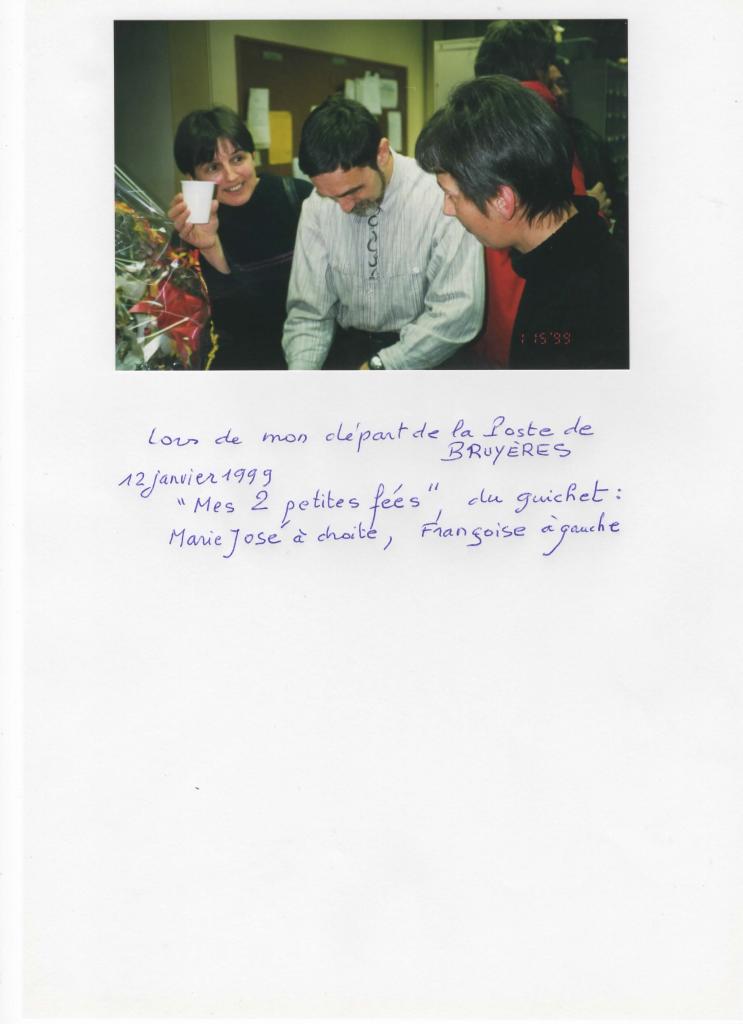 1 15 '99
Lors de mon départ de la Poste de
BRUYÈRES
12 janvier 1999
"Mes 2 petites fées", du guichet :
Marie José à droite, Françoise à gauche